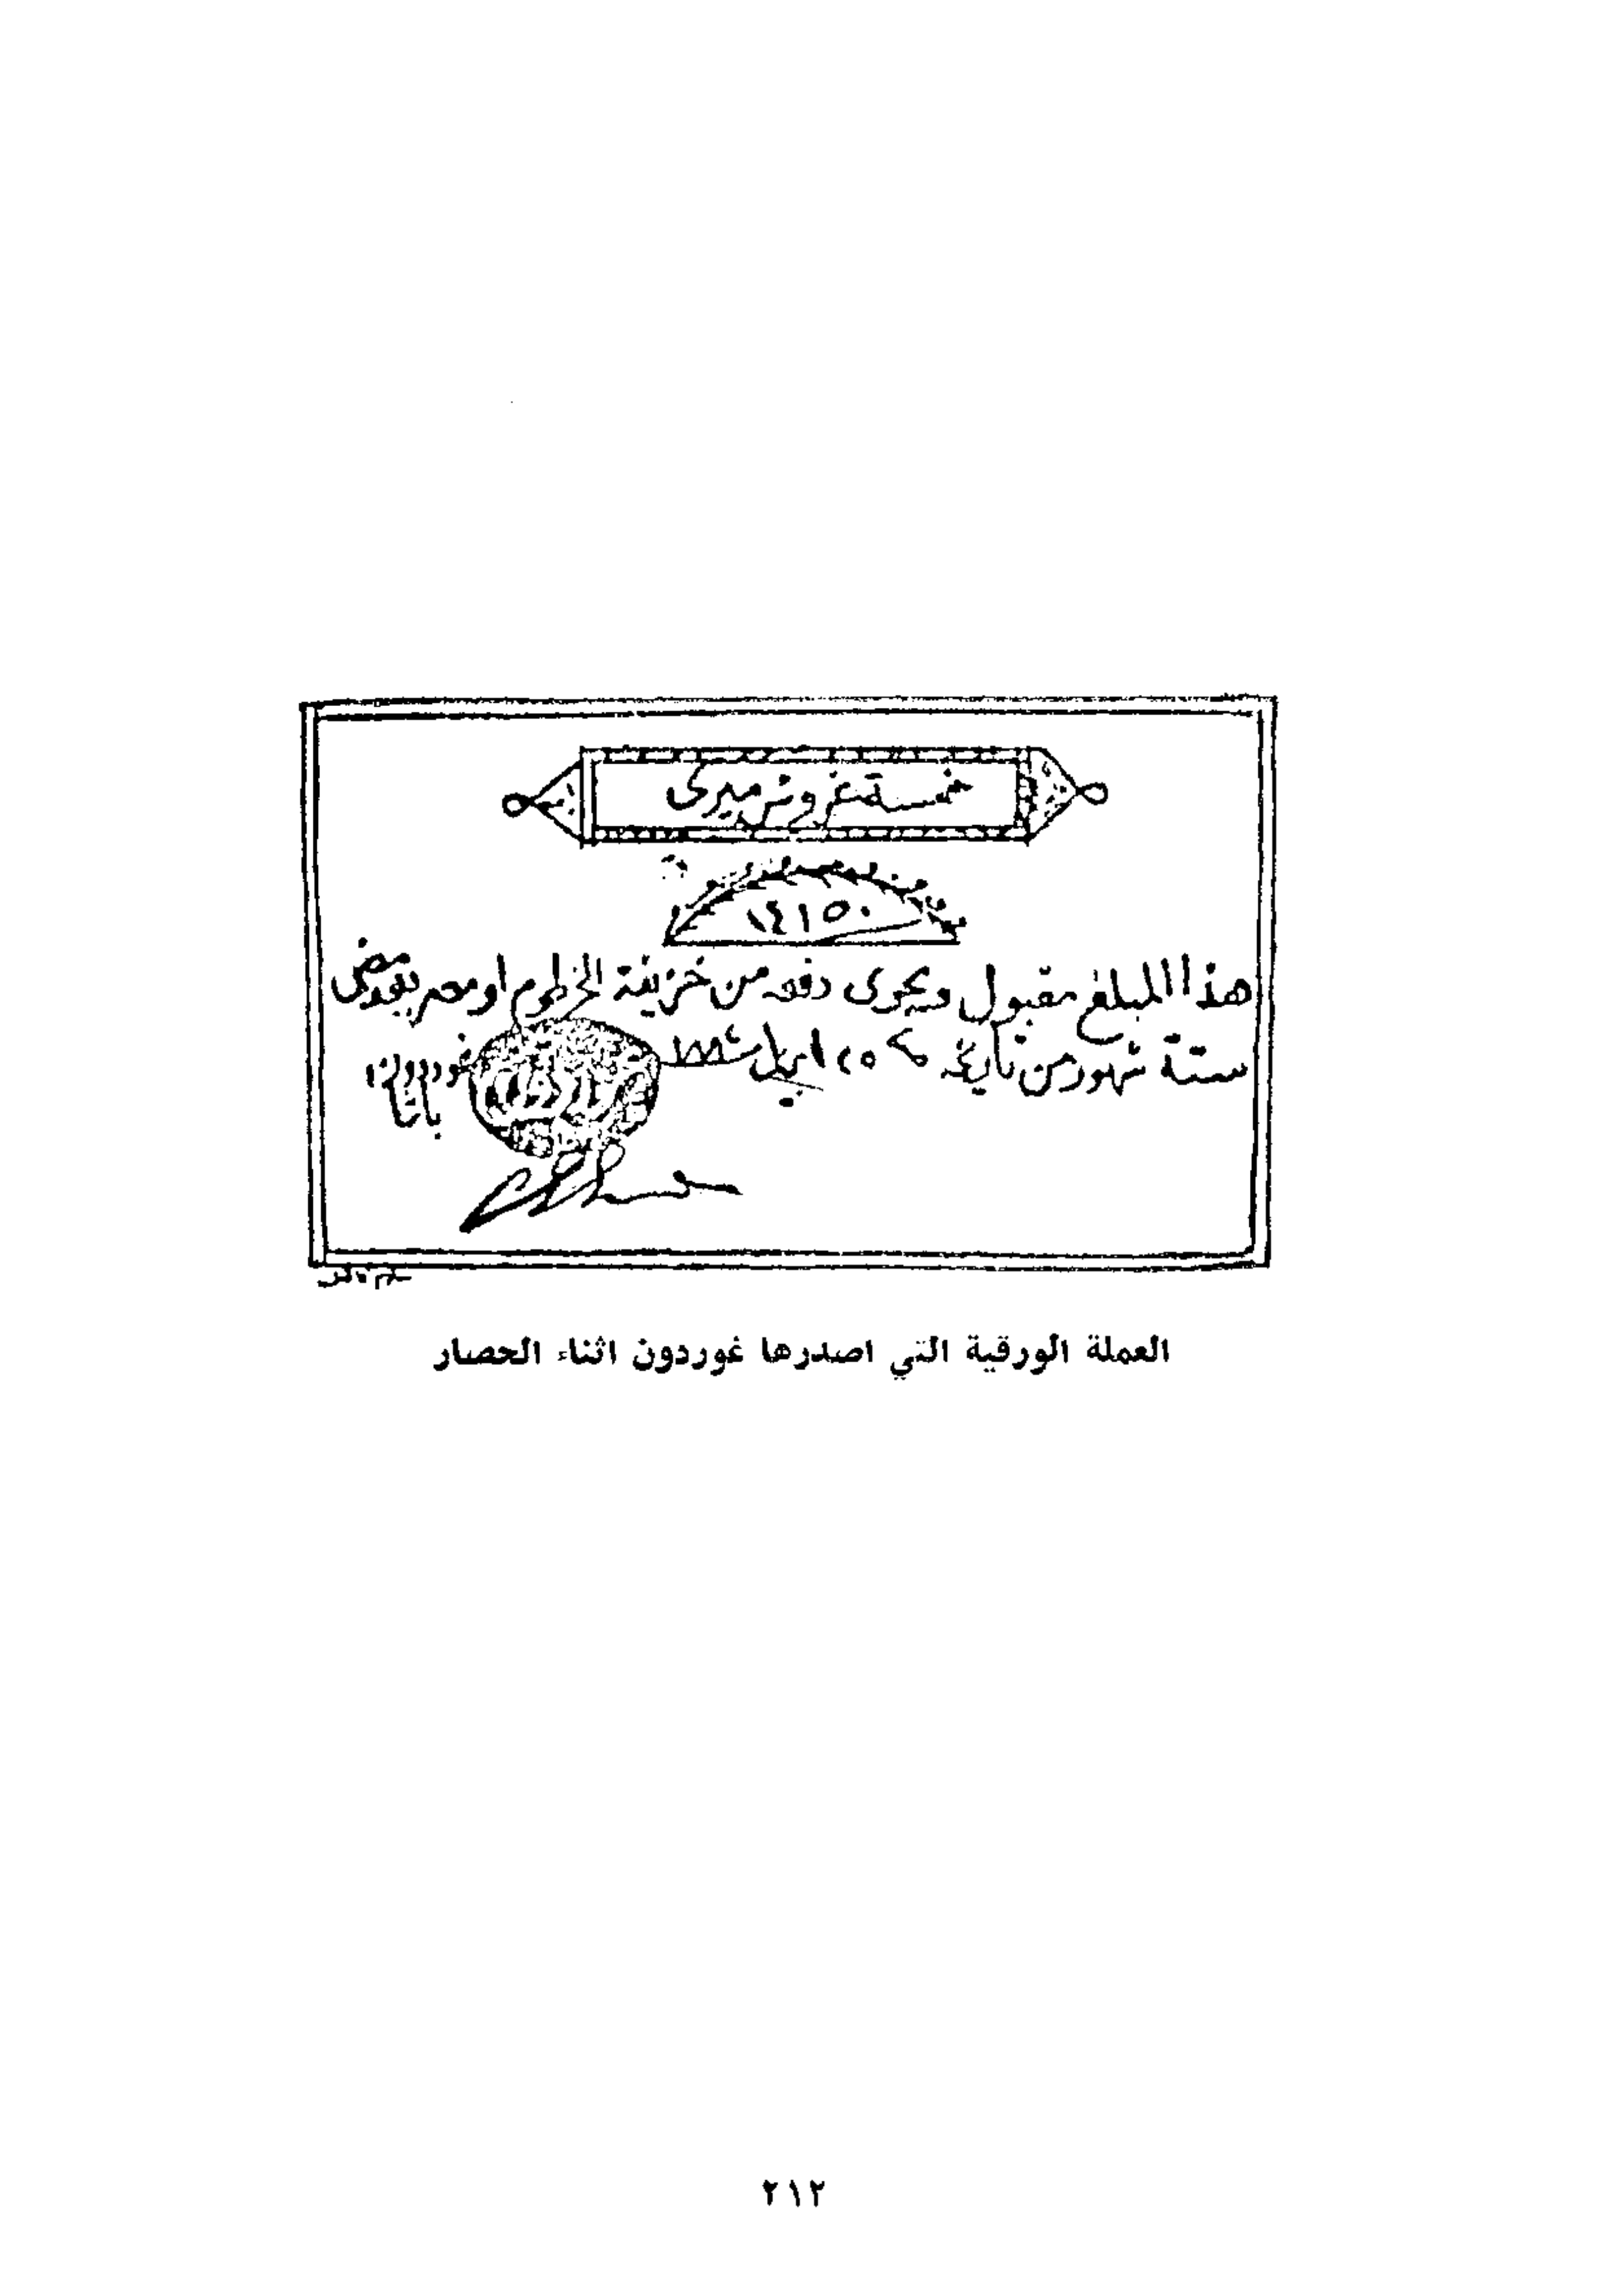 خمسة غروش ميرى
١٤١٥٠
هذا المبلغ مقبول ويجرى دفعه من خزينة الخرطوم او مصر بعد مضى
ستة شهور من تاريخه ٢٥ ابريل سنة ١٨٨٤
غوردون
باشا
العملة الورقية التي اصدرها غوردون اثناء الحصار
٢١٢